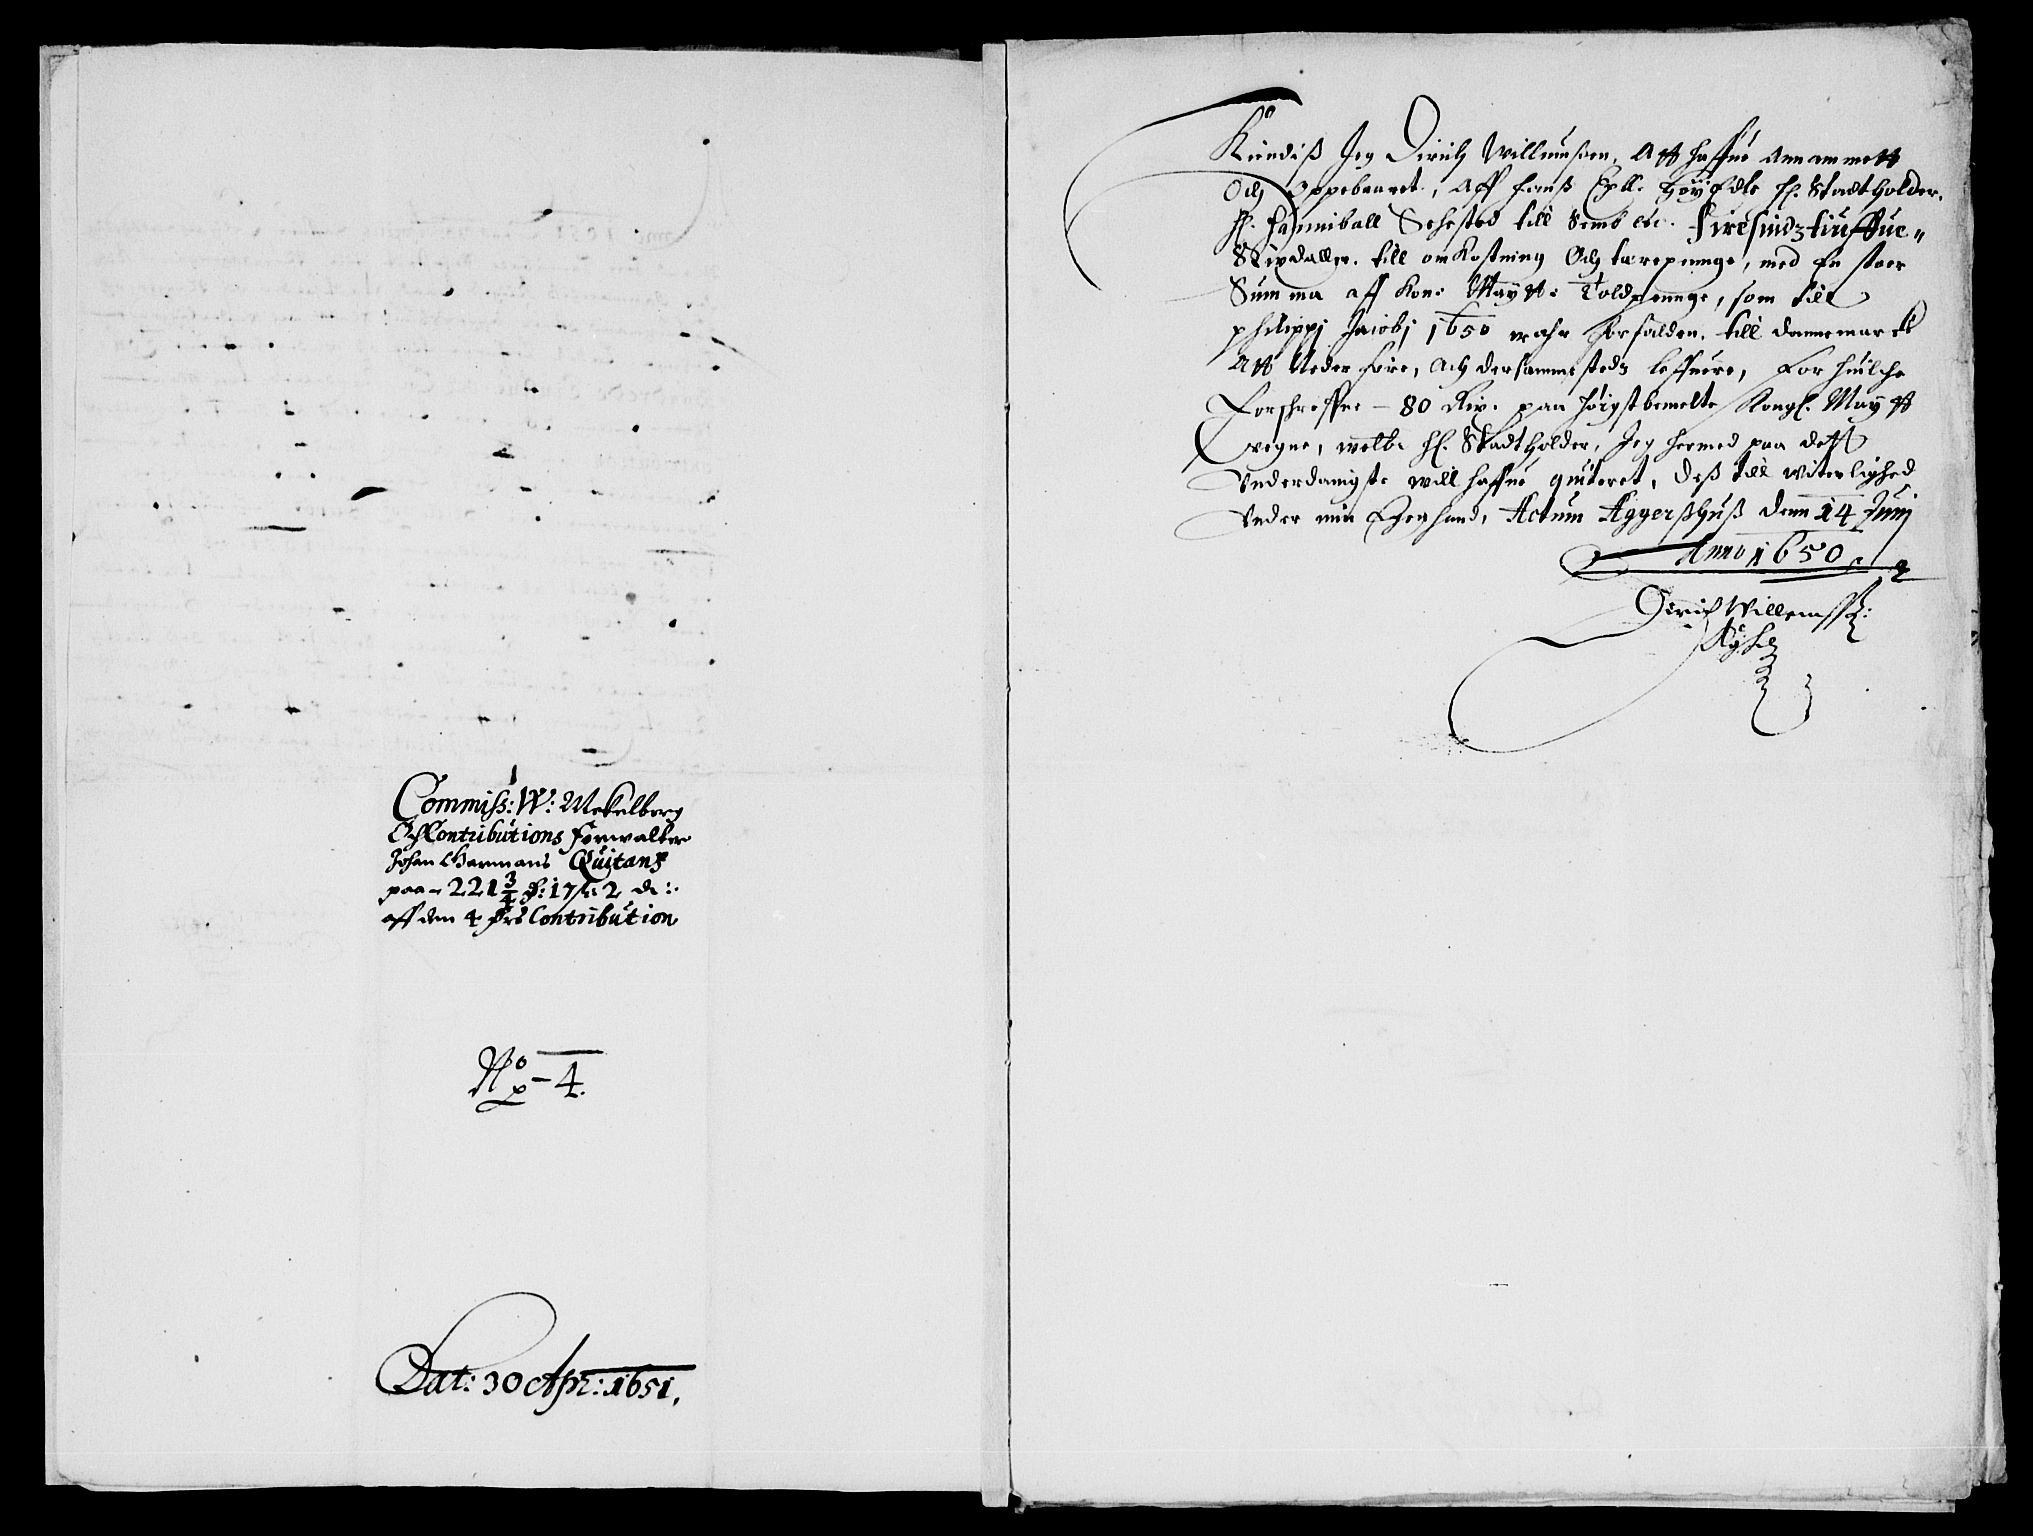 Commiss: W: Mekelberg
Och Contributions forwalter
Johan Garmans Quitans
paa - 221¾ 17 2 ds:
aff den 4 Contribution
No - 4.
Dat: 30 Apr: 1651.
Kiendis Jeg Dirich Willumsøen, Att haffue Annammett
Och Oppebaaret, Aff hans Høÿ Edle H. Stadtholder.
H. Hanniball Sehested till Semb etc. firesindztiuffue
Rixdaller till omkostning Och tærepennge, med En stoer
Summa aff Kon: Maÿtt: Toldpennge, som till
philippj Jacobj 1650 wahr forfalden, till dannemarck
Att Neder føre, Och dersammestedz leffuere, For huilche
Forschreffne - 80 Rix. paa høigstbemelte Kongl. Maÿtt
vegne, welb: H. Stadtholder, Jeg hermed paa dett
Vnderdanigste will haffue quiteret, Dess till witerlighed
Vnder min Egenhand, Actum Aggerßhuß denn 14 Junj
Anno 1650
Dirich Willemss: